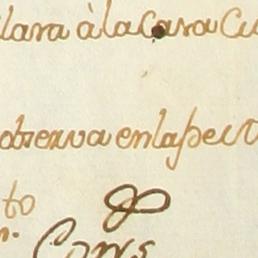 lara à la Casa Cu
observa en la pecu
to
n.
Cons